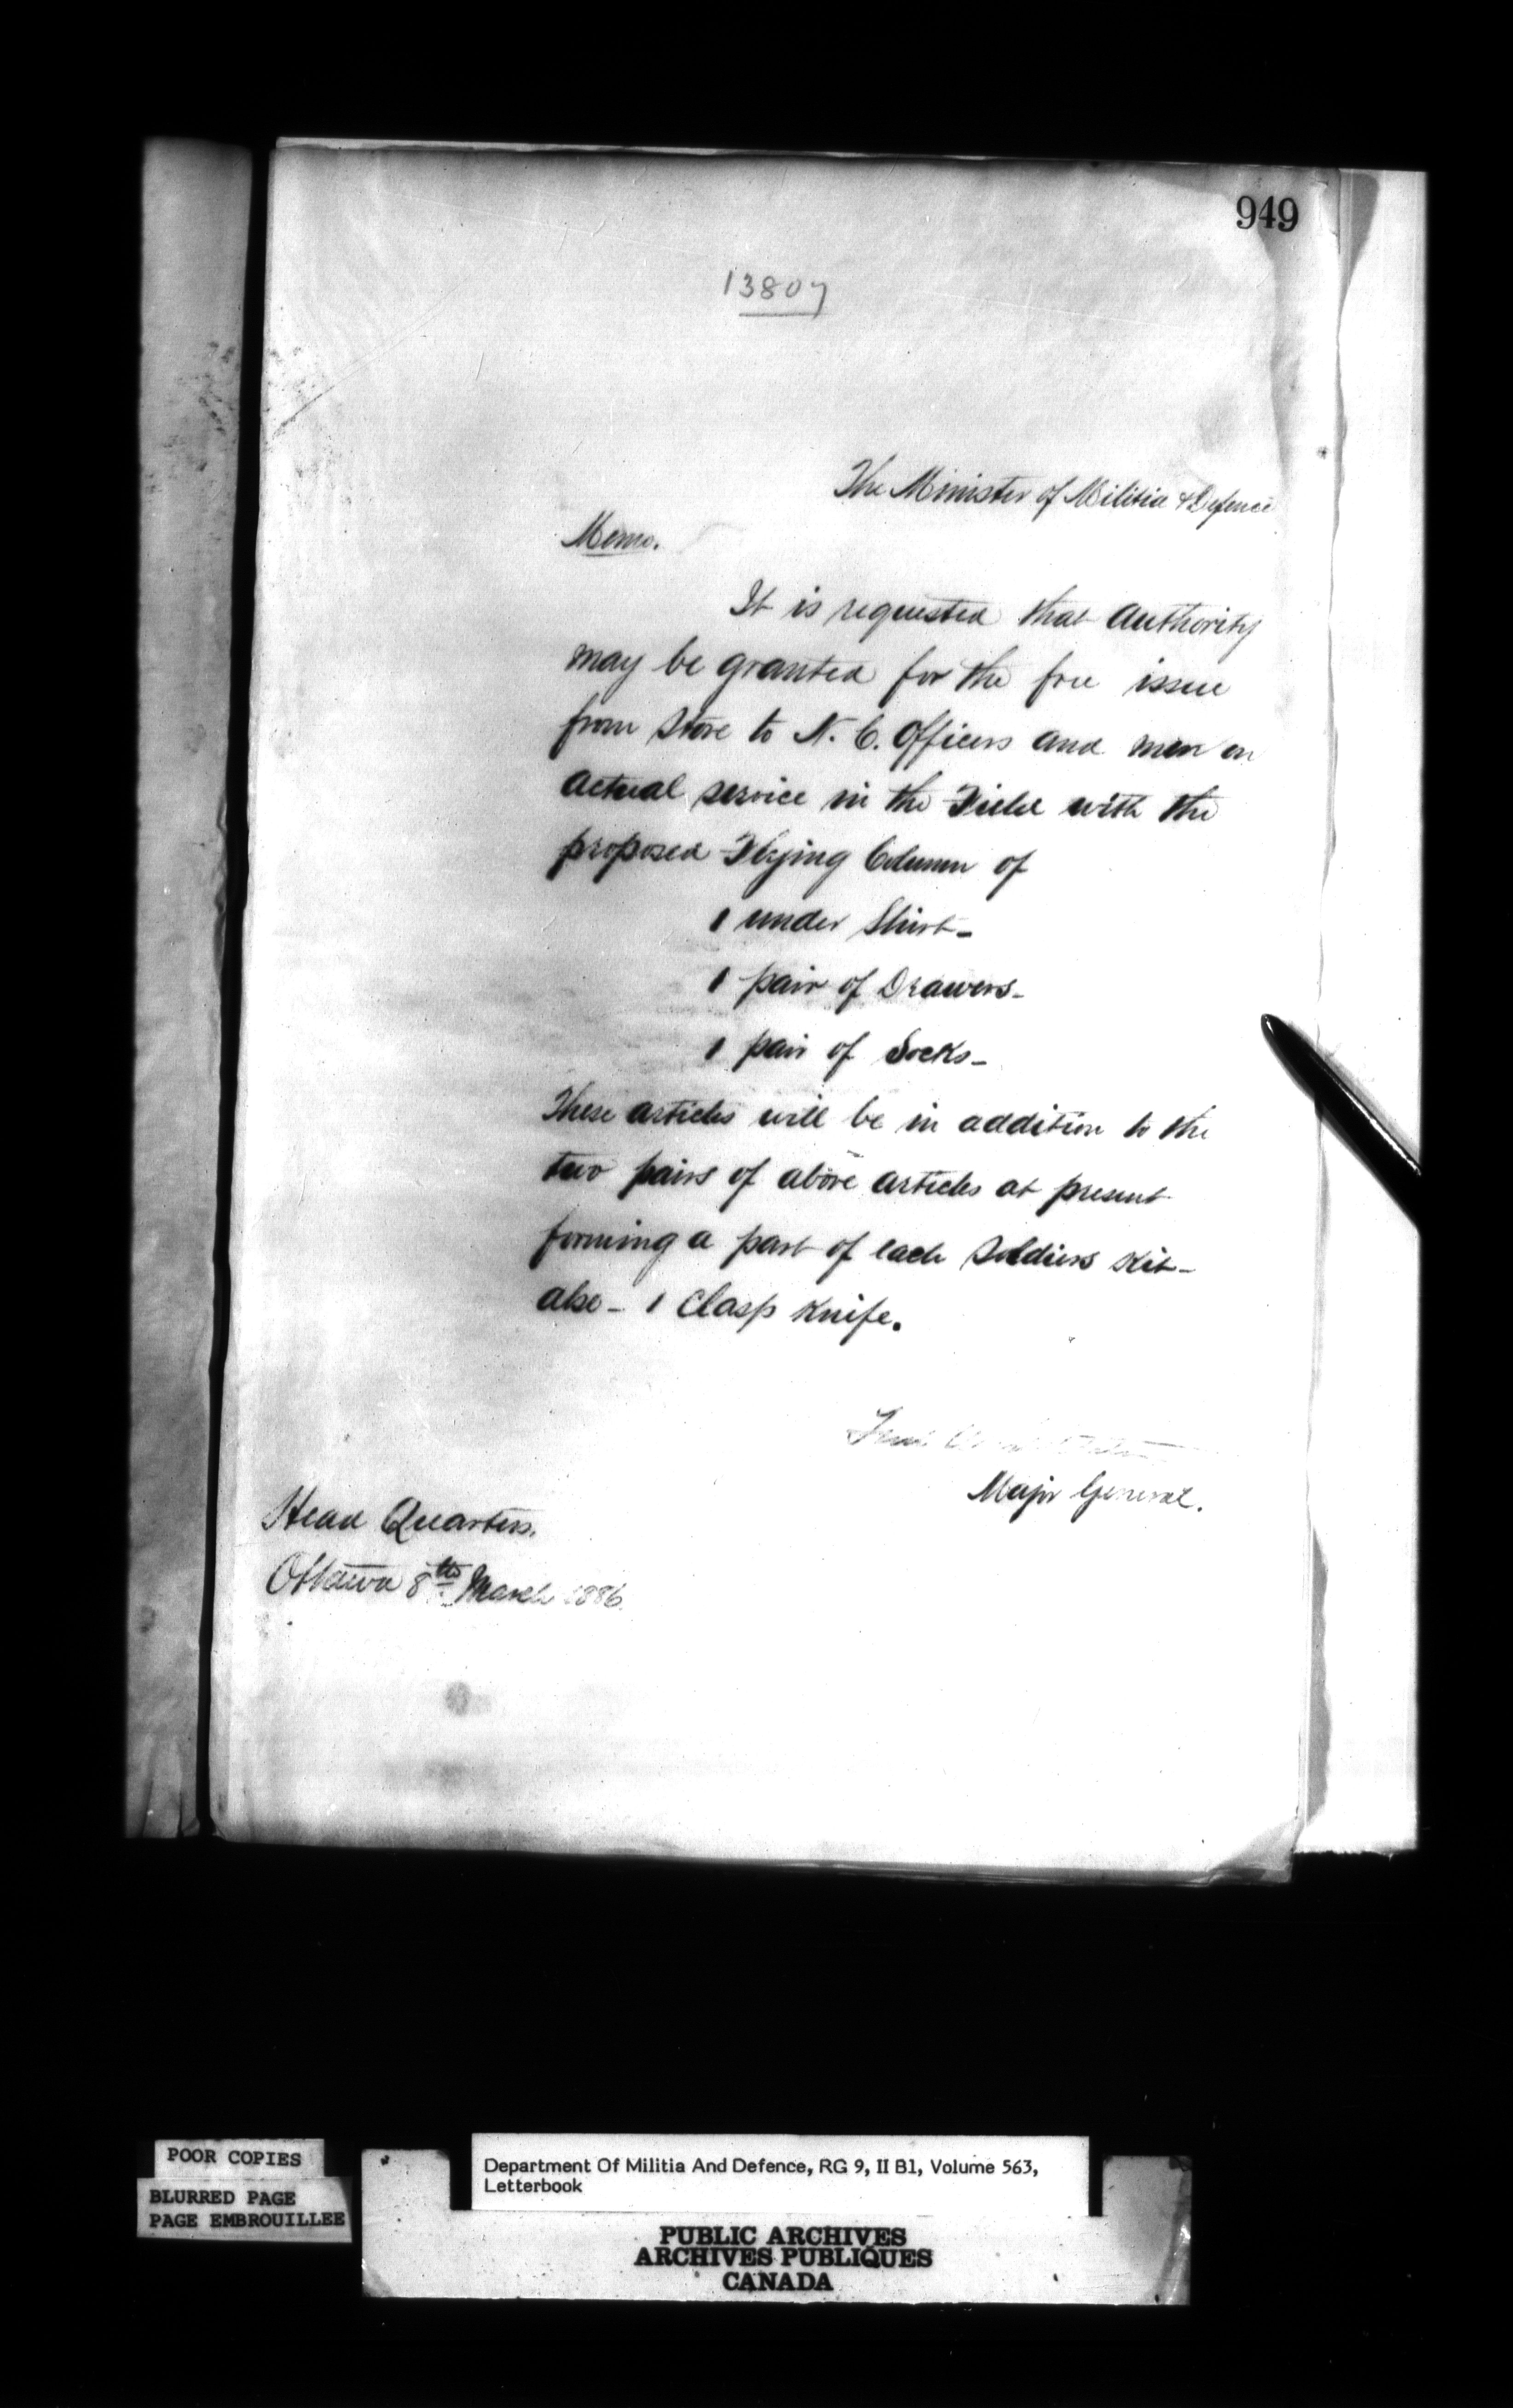 949
13807
The Minister of Militia & Defence
Memo.
It is requested that authority
may be granted for the free issue
from Store to N. C. Officers and men on
actual service in the Field with the
proposed Flying Column of
1 under Shirt -
1 pair of Drawers -
1 pair of Socks -
These articles will be in addition to the
two pairs of above articles at present
forming a part of each Soldiers Kit -
also - 1 Clasp Knife.
Major General.
Head Quarters.
Ottawa 8th March 1886.
POOR COPIES
BLURRED PAGE
PAGE EMBROUILLEE
Department Of Militia And Defence, RG 9, II B1, Volume 563,
Letterbook
PUBLIC ARCHIVES
ARCHIVES PUBLIQUES
CANADA